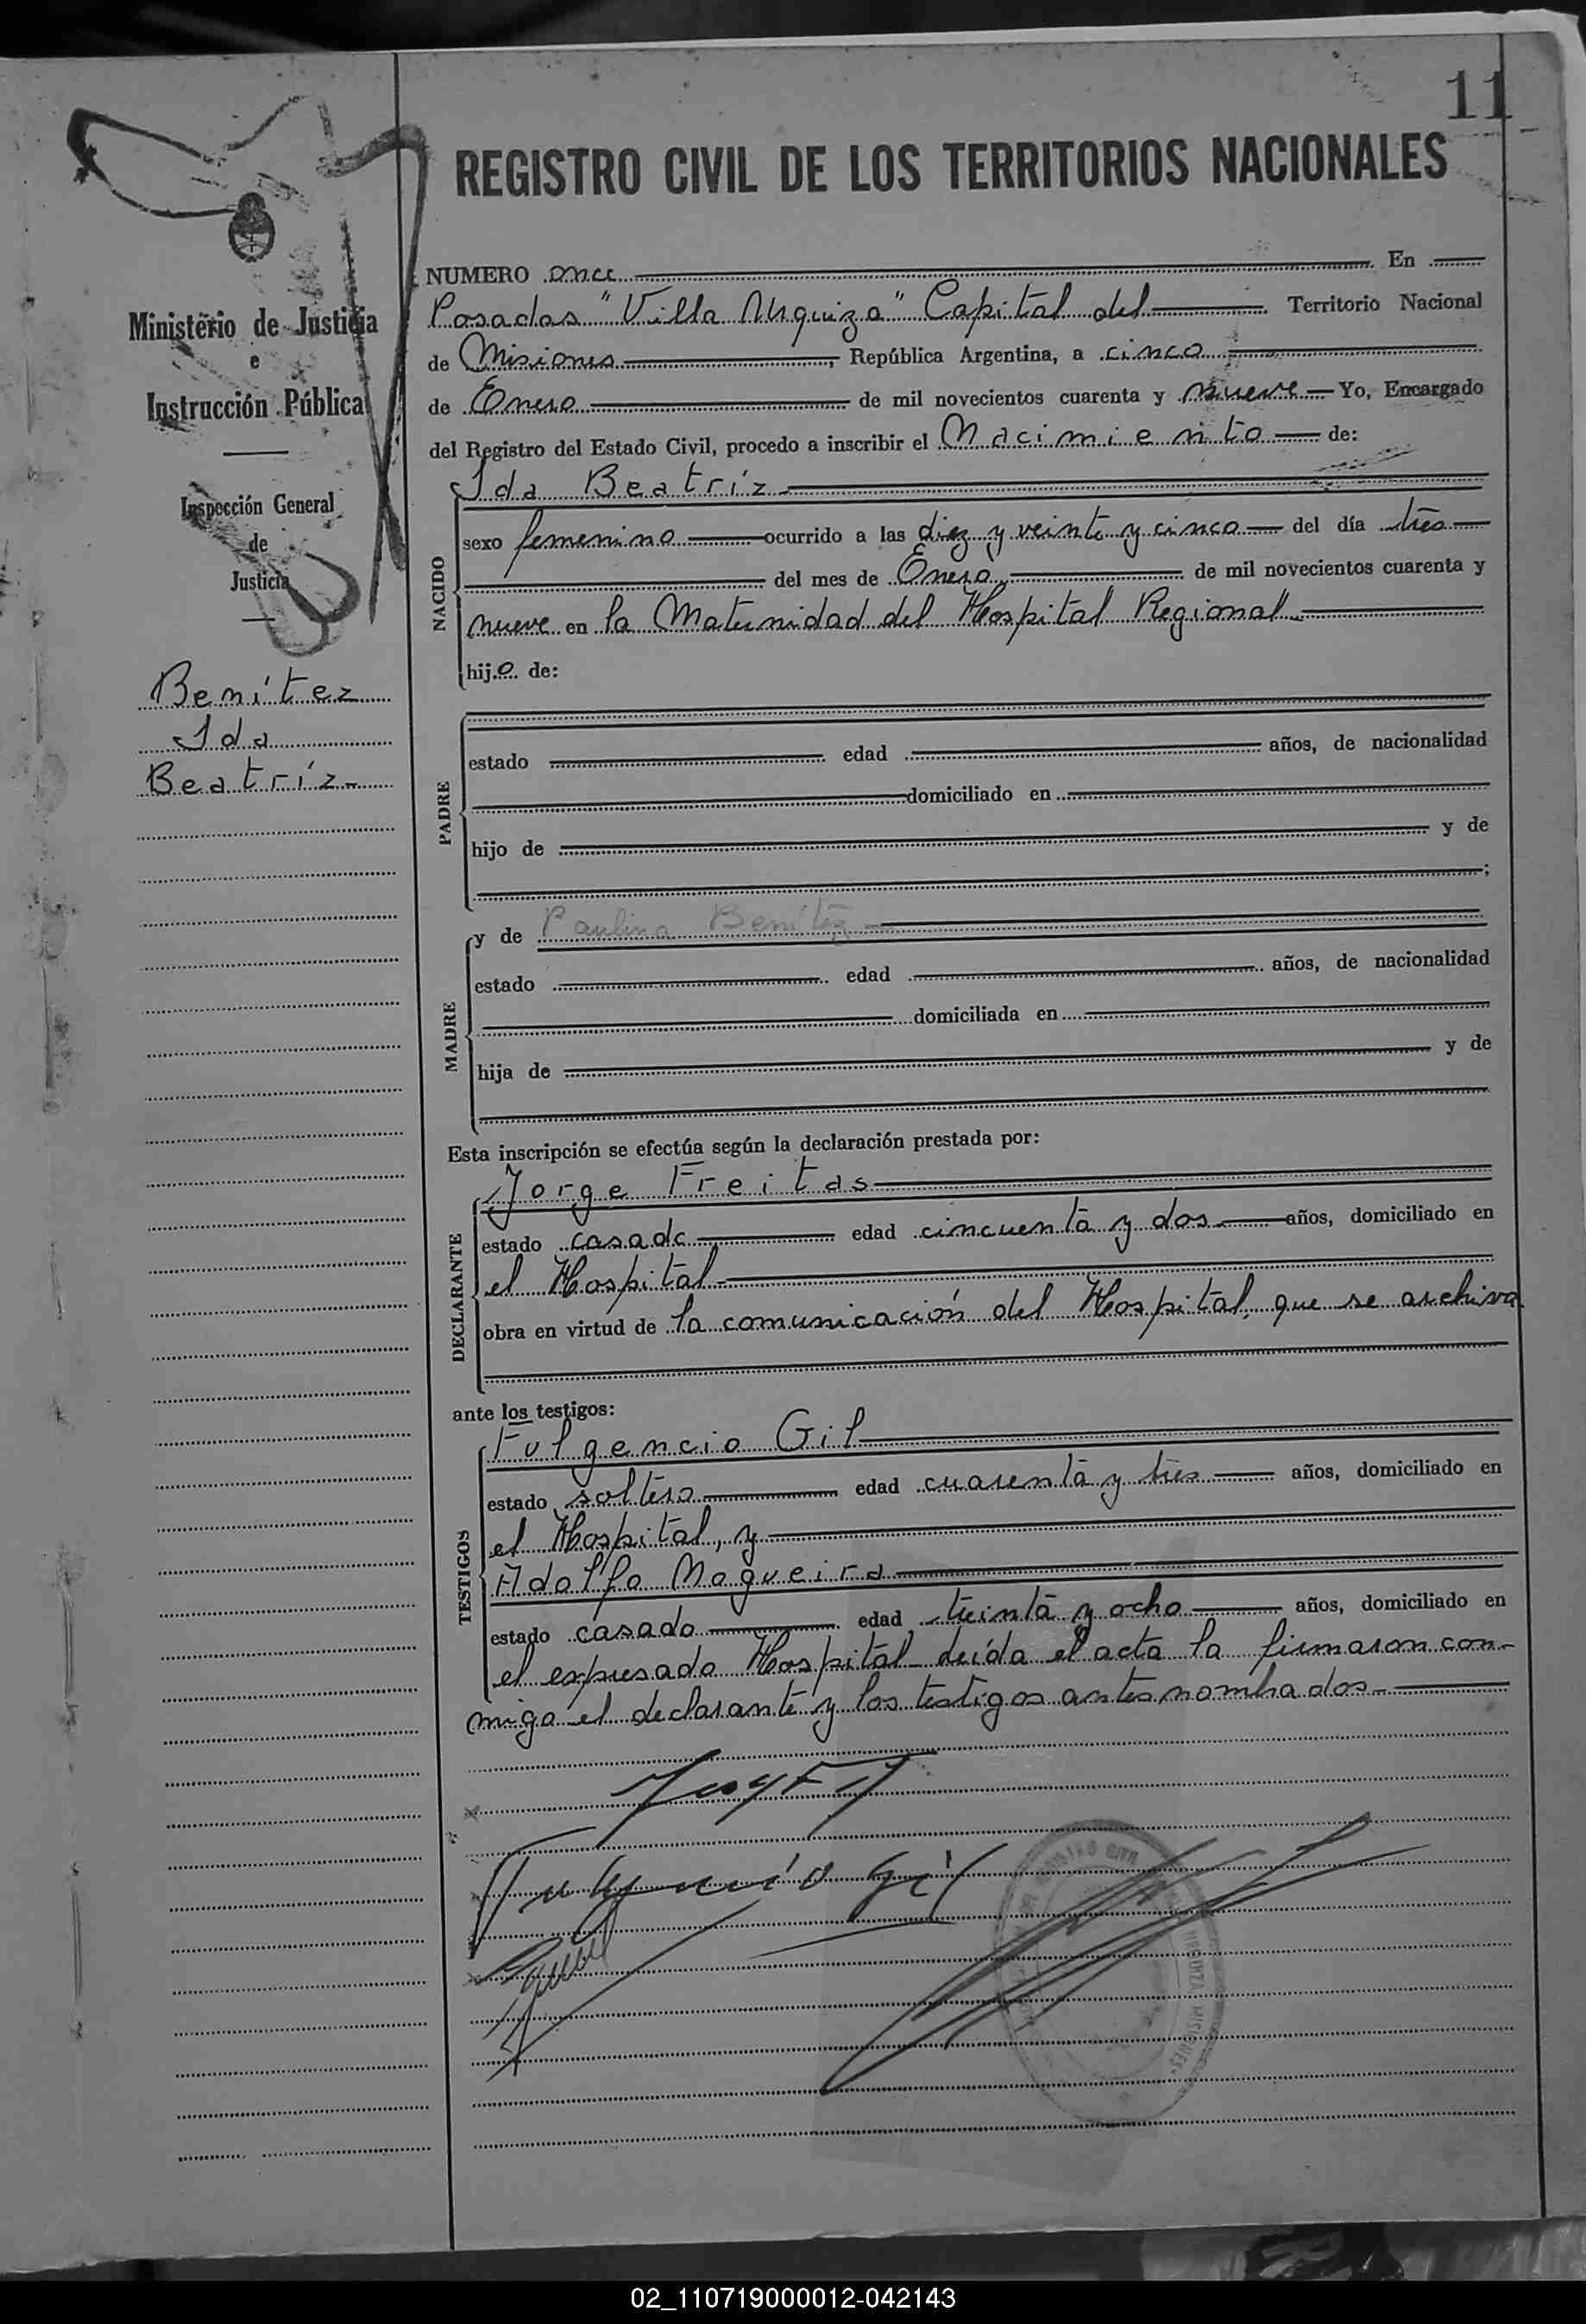 11
REGISTRO CIVIL DE LOS TERRITORIOS NACIONALES
Ministerio de Justicia
e
Instrucción Pública
Inspección General
de
Justicia
Benítez
Ida
Beatríz
NUMERO once En
Posadas "Villa Urquiza" Capital del Territorio Nacional
de Misiones, República Argentina, a cinco
de Enero de mil novecientos cuarenta y nueve Yo, Encargado
del Registro del Estado Civil, procedo a inscribir el Nacimiento de:
NACIDO
Ida Beatríz
sexo femenino ocurrido a las diez y veinte y cinco del día tres
del mes de Enero de mil novecientos cuarenta y
nueve en la Maternidad del Hospital Regional
hijo de:
PADRE
estado edad años, de nacionalidad
domiciliado en
hijo de y de
;
MADRE
y de Paulina Benítez
estado edad años, de nacionalidad
domiciliada en
hija de y de
Esta inscripción se efectúa según la declaración prestada por:
DECLARANTE
Jorge Freitas
estado casado edad cincuenta y dos años, domiciliado en
el Hospital
obra en virtud de la comunicación del Hospital, que se archiva
ante los testigos:
TESTIGOS
Fulgencio Gil
estado soltero edad cuarenta y tres años, domiciliado en
el Hospital, y
Adolfo Nogueira
estado casado edad treinta y ocho años, domiciliado en
el expresado Hospital leída el acta la firmaron con-
migo el declarante y los testigos antes nombrados
Fulgencio Gil
02_110719000012-042143